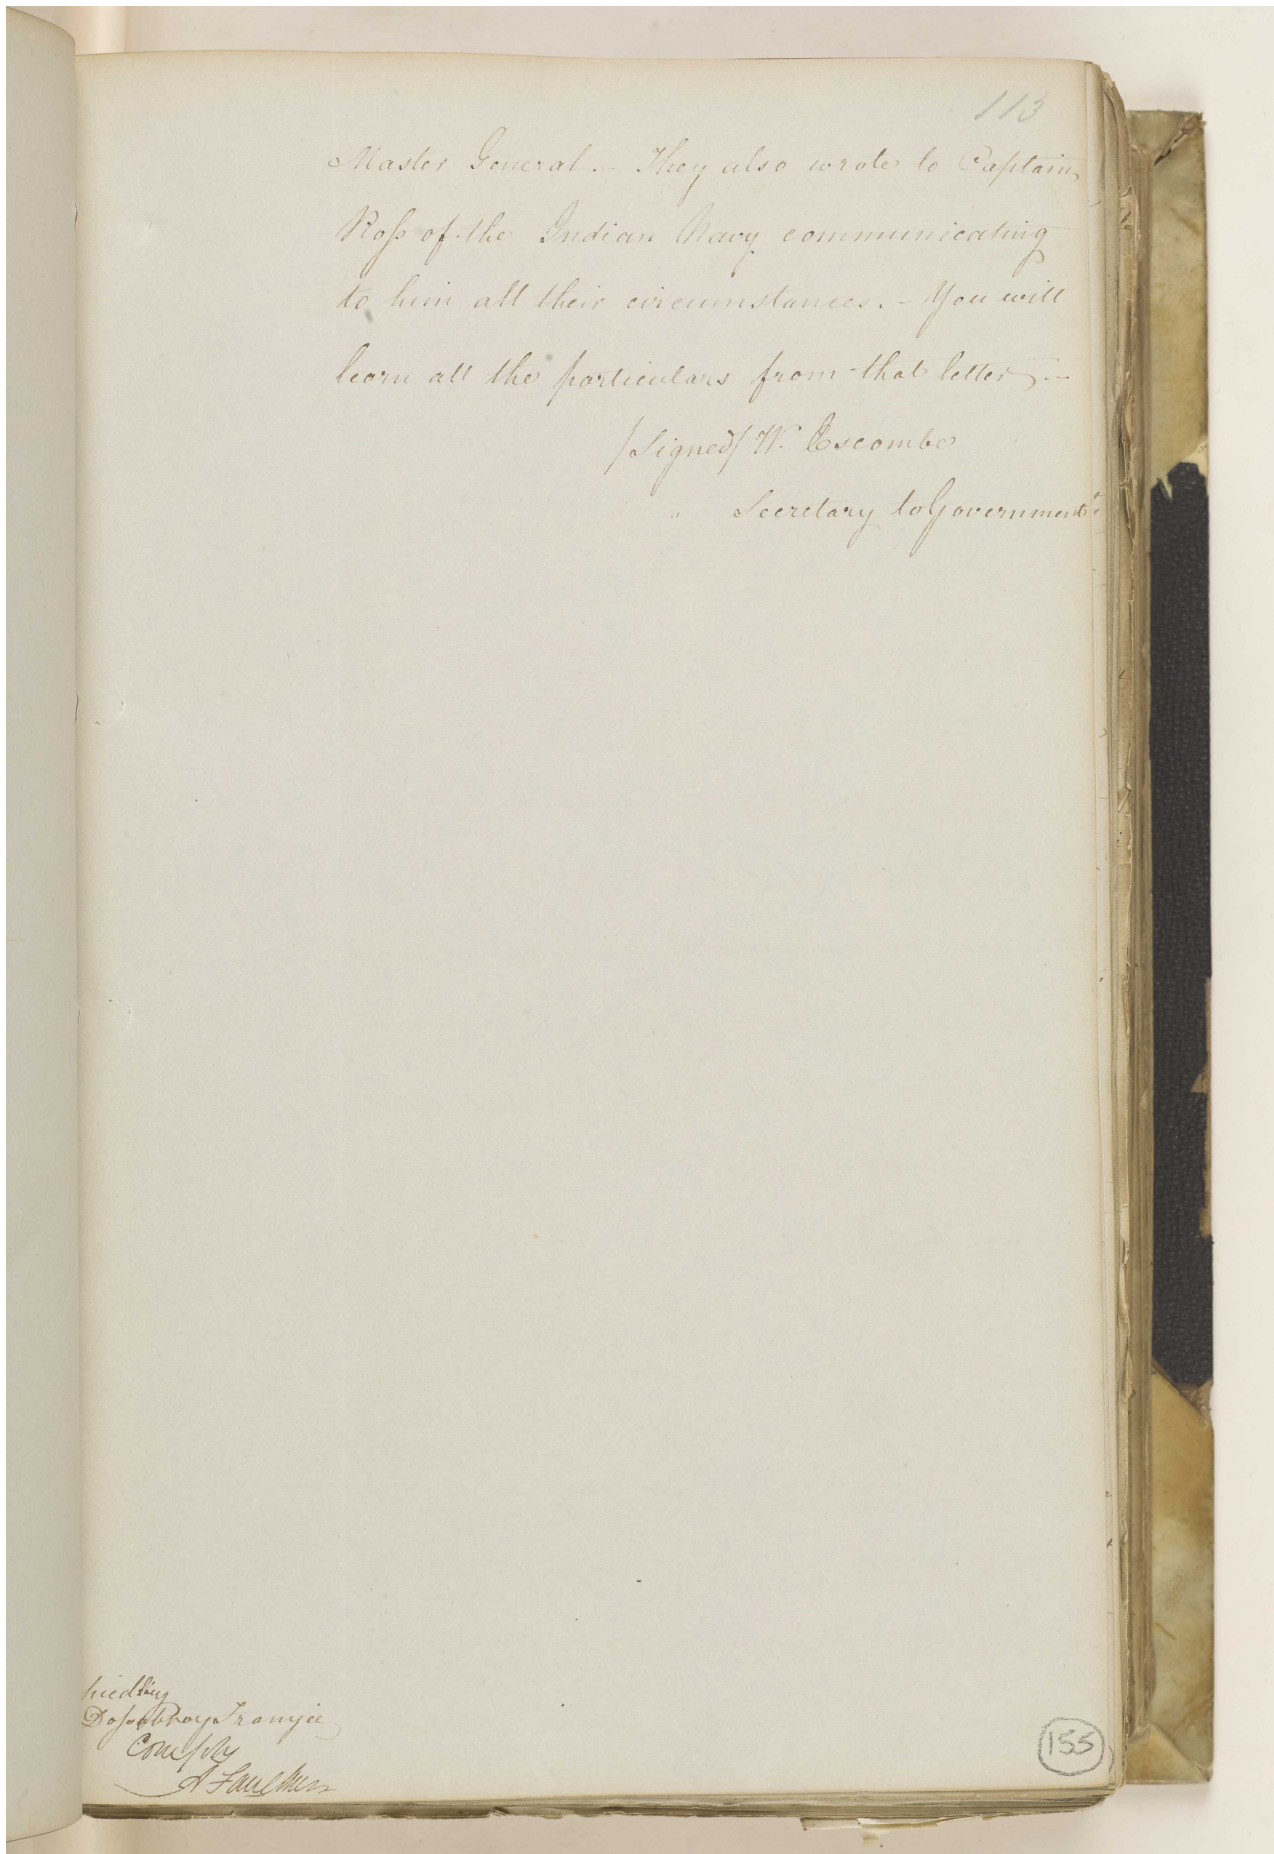 113
Master General. - They also wrote to Captain
Ross of the Indian Navy communicating
to him all their circumstances. - You will
learn all the particulars from that letter -
/Signed/ W. Escombe
" Secretary to Government.
by
Dossabhoy Framjee
A Faulkner
155